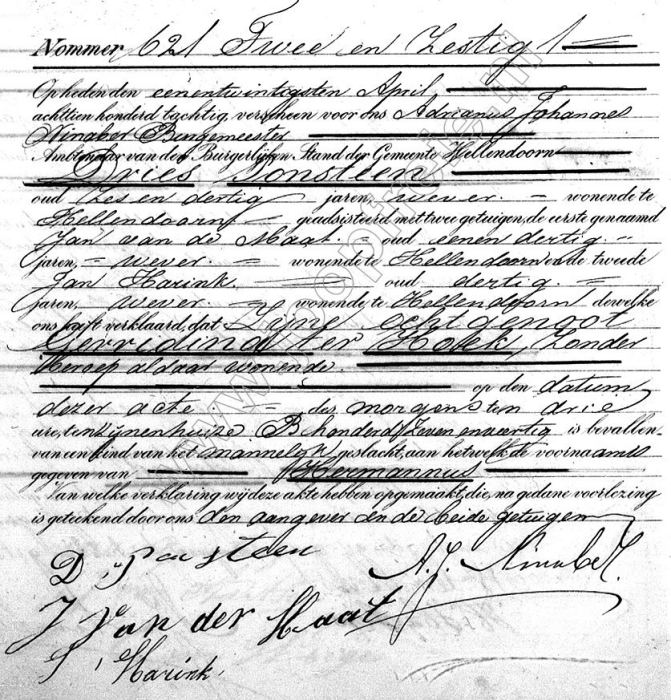 Nommer 62 / Twee en Zestig /
Op heden den eenentwintigsten April
achttien honderd tachtig, verscheen voor ons Adrianus Johannes
Ninaber Burgemeester
Ambtenaar van den Burgerlijken Stand der Gemeente Hellendoorn
Dries
oud Zes en dertig jaren, wever. wonende te
Hellendoorn geadsisteerd met twee getuigen, de eerste genaamd
Jan van de Maat. oud eenen dertig
jaren, wever wonende te Hellendoorn en de tweede
Jan Harink oud dertig.
jaren, wever wonende te Hellendoorn dewelke
ons heeft verklaard, dat Zijne echtgenoot
Gerridina ter Zonder
Beroep aldaar wonende.
op den datum
dezer acte des morgens ten drie
ure, ten zijnenhuize B honderd Zeven en veertig is bevallen
van een kind van het mannelijk geslacht, aan hetwelk de voornaam is
gegeven van Hermannus
Van welke verklaring wij deze akte hebben opgemaakt, die, na gedane voorlezing
is geteekend door ons den aangever en de beide getuigen
D. A. J. Ninaber.
J van der Maat
J Harink
www.